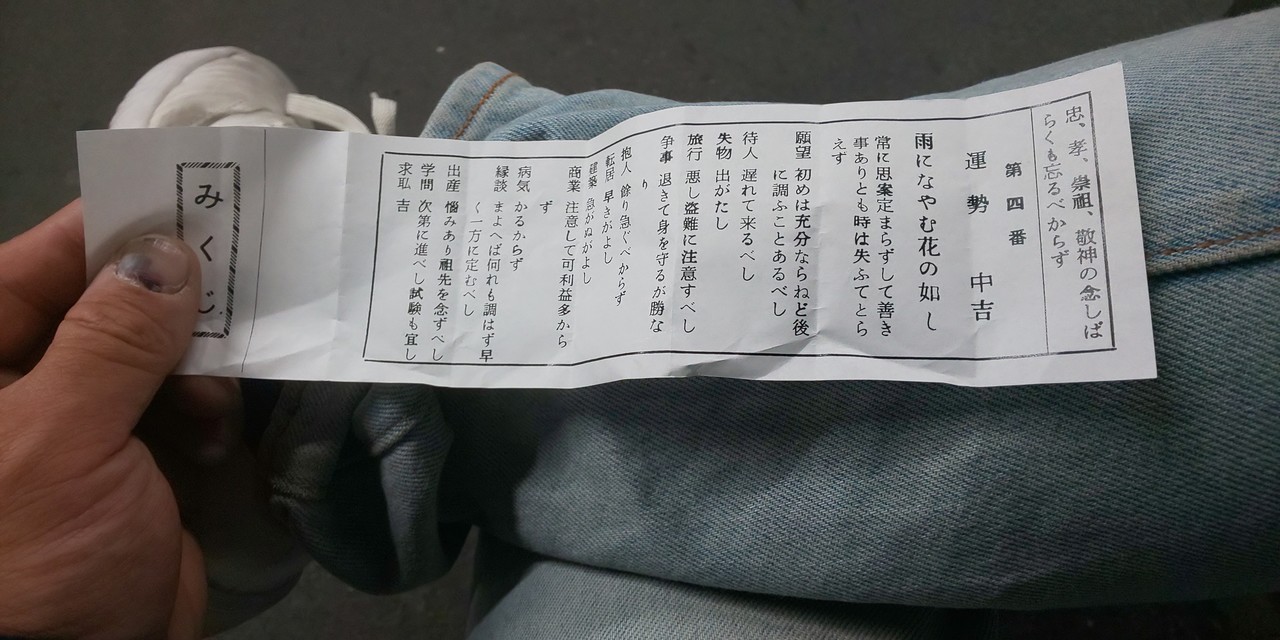 忠、孝、崇祖、敬神の念しば
らくも忘るべからず
第四番
運勢 中吉
雨になやむ花の如し
常に思案定まらずして善き
事ありとも時は失ふてとら
えず
願望 初めは充分ならねど後
に調ふことあるべし
待人 遅れて来るべし
失物 出がたし
旅行 悪し盗難に注意すべし
争事 退きて身を守るが勝な
り
抱人 餘り急ぐべからず
転居 早きがよし
建築 急がぬがよし
商業 注意して可利益多から
ず
病気 かるからず
縁談 まよへば何れも調はず早
く一方に定むべし
出産 悩みあり祖先を念ずべし
学問 次第に進べし試験も宜し
求職 吉
みくじ